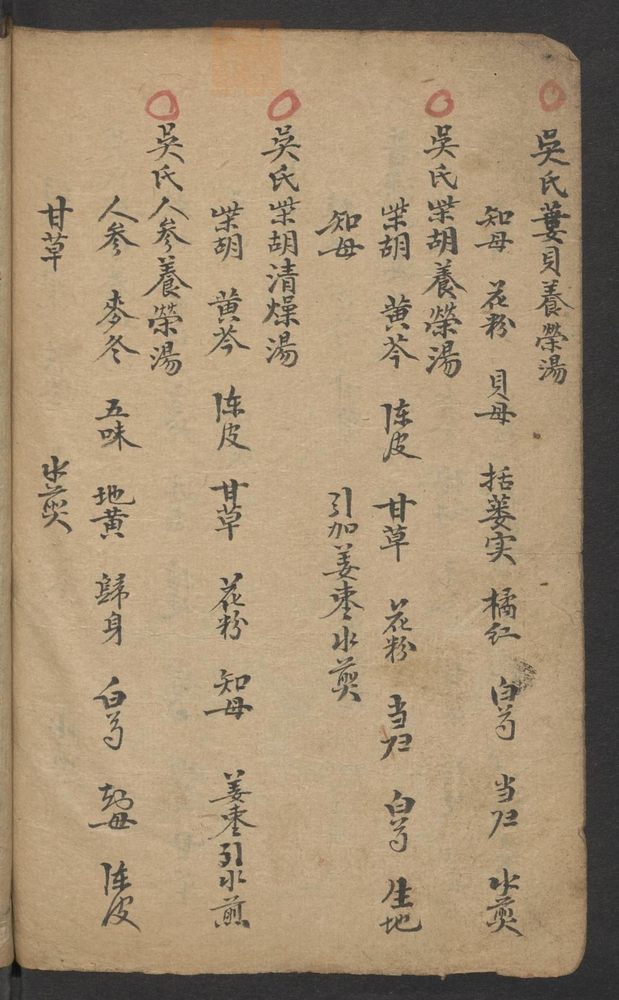 吳氏蔞貝養榮湯
知母 花粉 貝母 括蒌实 橘红 白芍 当归 水煎
吳氏柴胡養榮湯
柴胡 黄芩 陈皮 甘草 花粉 当归 白芍 生地
知母 引加姜枣水煎
吳氏柴胡清燥湯
柴胡 黄芩 陈皮 甘草 花粉 知母 姜枣引水煎
吳氏人参養榮湯
人参 麦冬 五味 地黄 歸身 白芍 知母 陈皮
甘草 水煎